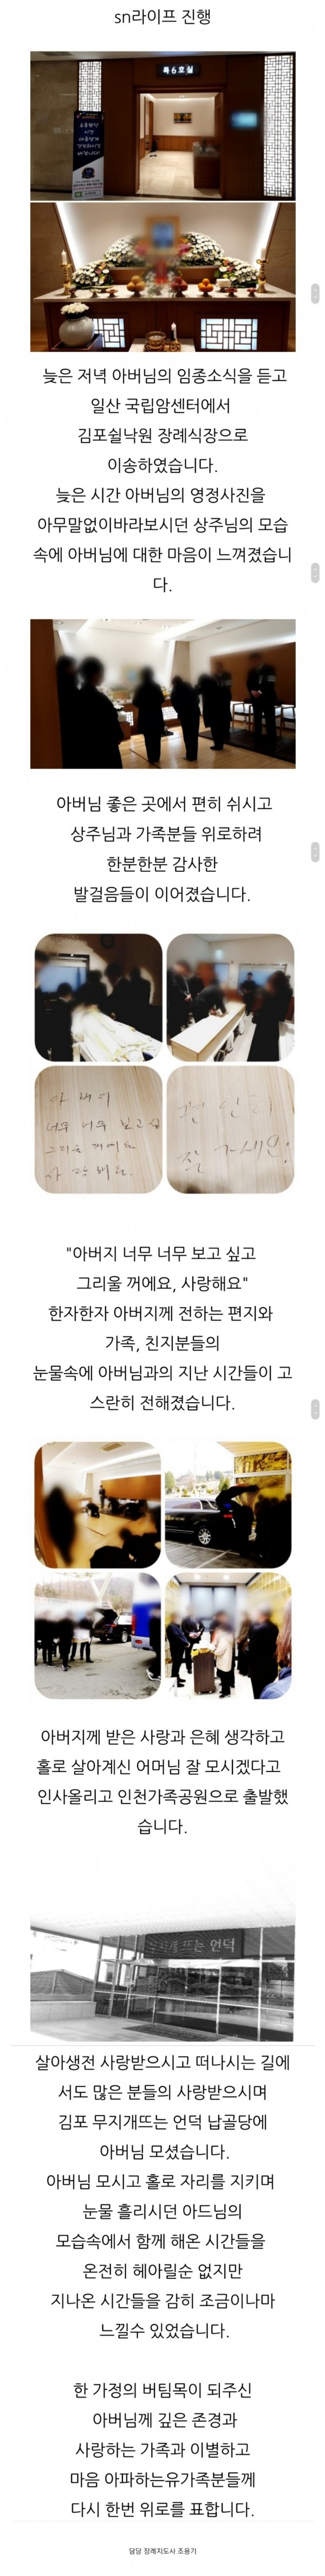 sn라이프 진행
특6호실
늦은 저녁 아버님의 임종소식을 듣고
일산 국립암센터에서
김포쉴낙원 장례식장으로
이송하였습니다.
늦은 시간 아버님의 영정사진을
아무말없이바라보시던 상주님의 모습
속에 아버님에 대한 마음이 느껴졌습니
다.
아버님 좋은 곳에서 편히 쉬시고
상주님과 가족분들 위로하려
한분한분 감사한
발걸음들이 이어졌습니다.
아버지
너무 너무 보고 싶고
그리울 꺼에요
사랑해요
편안히
잘 가세요!
"아버지 너무 너무 보고 싶고
그리울 꺼에요, 사랑해요"
한자한자 아버지께 전하는 편지와
가족, 친지분들의
눈물속에 아버님과의 지난 시간들이 고
스란히 전해졌습니다.
아버지께 받은 사랑과 은혜 생각하고
홀로 살아계신 어머님 잘 모시겠다고
인사올리고 인천가족공원으로 출발했
습니다.
뜨는 언덕
살아생전 사랑받으시고 떠나시는 길에
서도 많은 분들의 사랑받으시며
김포 무지개뜨는 언덕 납골당에
아버님 모셨습니다.
아버님 모시고 홀로 자리를 지키며
눈물 흘리시던 아드님의
모습속에서 함께 해온 시간들을
온전히 헤아릴순 없지만
지나온 시간들을 감히 조금이나마
느낄수 있었습니다.
한 가정의 버팀목이 되주신
아버님께 깊은 존경과
사랑하는 가족과 이별하고
마음 아파하는유가족분들께
다시 한번 위로를 표합니다.
담당 장례지도사 조용기